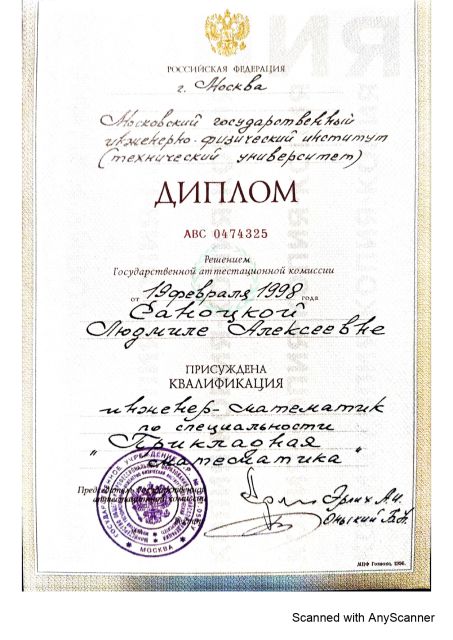 РОССИЙСКАЯ ФЕДЕРАЦИЯ
г. Москва
Московский государственный
инженерно-физический институт
(технический университет)
ДИПЛОМ
АВС 0474325
Решением
Государственной аттестационной комиссии
от 19 февраля 1998 года
Саноцкой
Людмиле Алексеевне
ПРИСУЖДЕНА
КВАЛИФИКАЦИЯ
инженер-математик
по специальности
"Прикладная
математика"
Председатель Государственной
аттестационной комиссии
Эрлих А.И.
МОСКВА
МПФ Гознака, 1996.
Scanned with AnyScanner